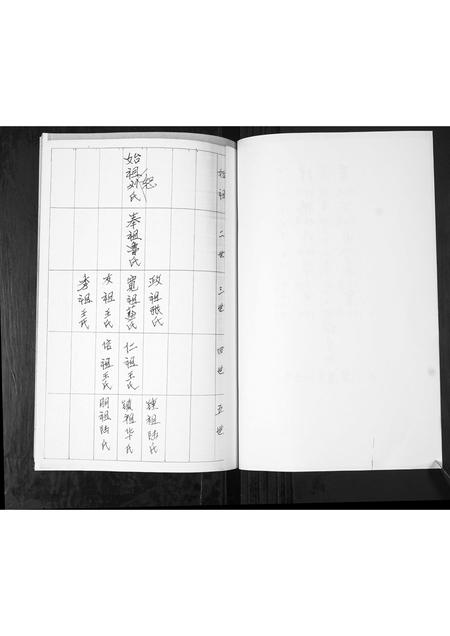 始祖
始祖刘氏
二世
奉祖曹氏
三世
政祖张氏
宽祖蔡氏
友祖王氏
孝祖王氏
四世
仁祖王氏
信祖王氏
五世
祖陆氏
祖华氏
明祖陆氏